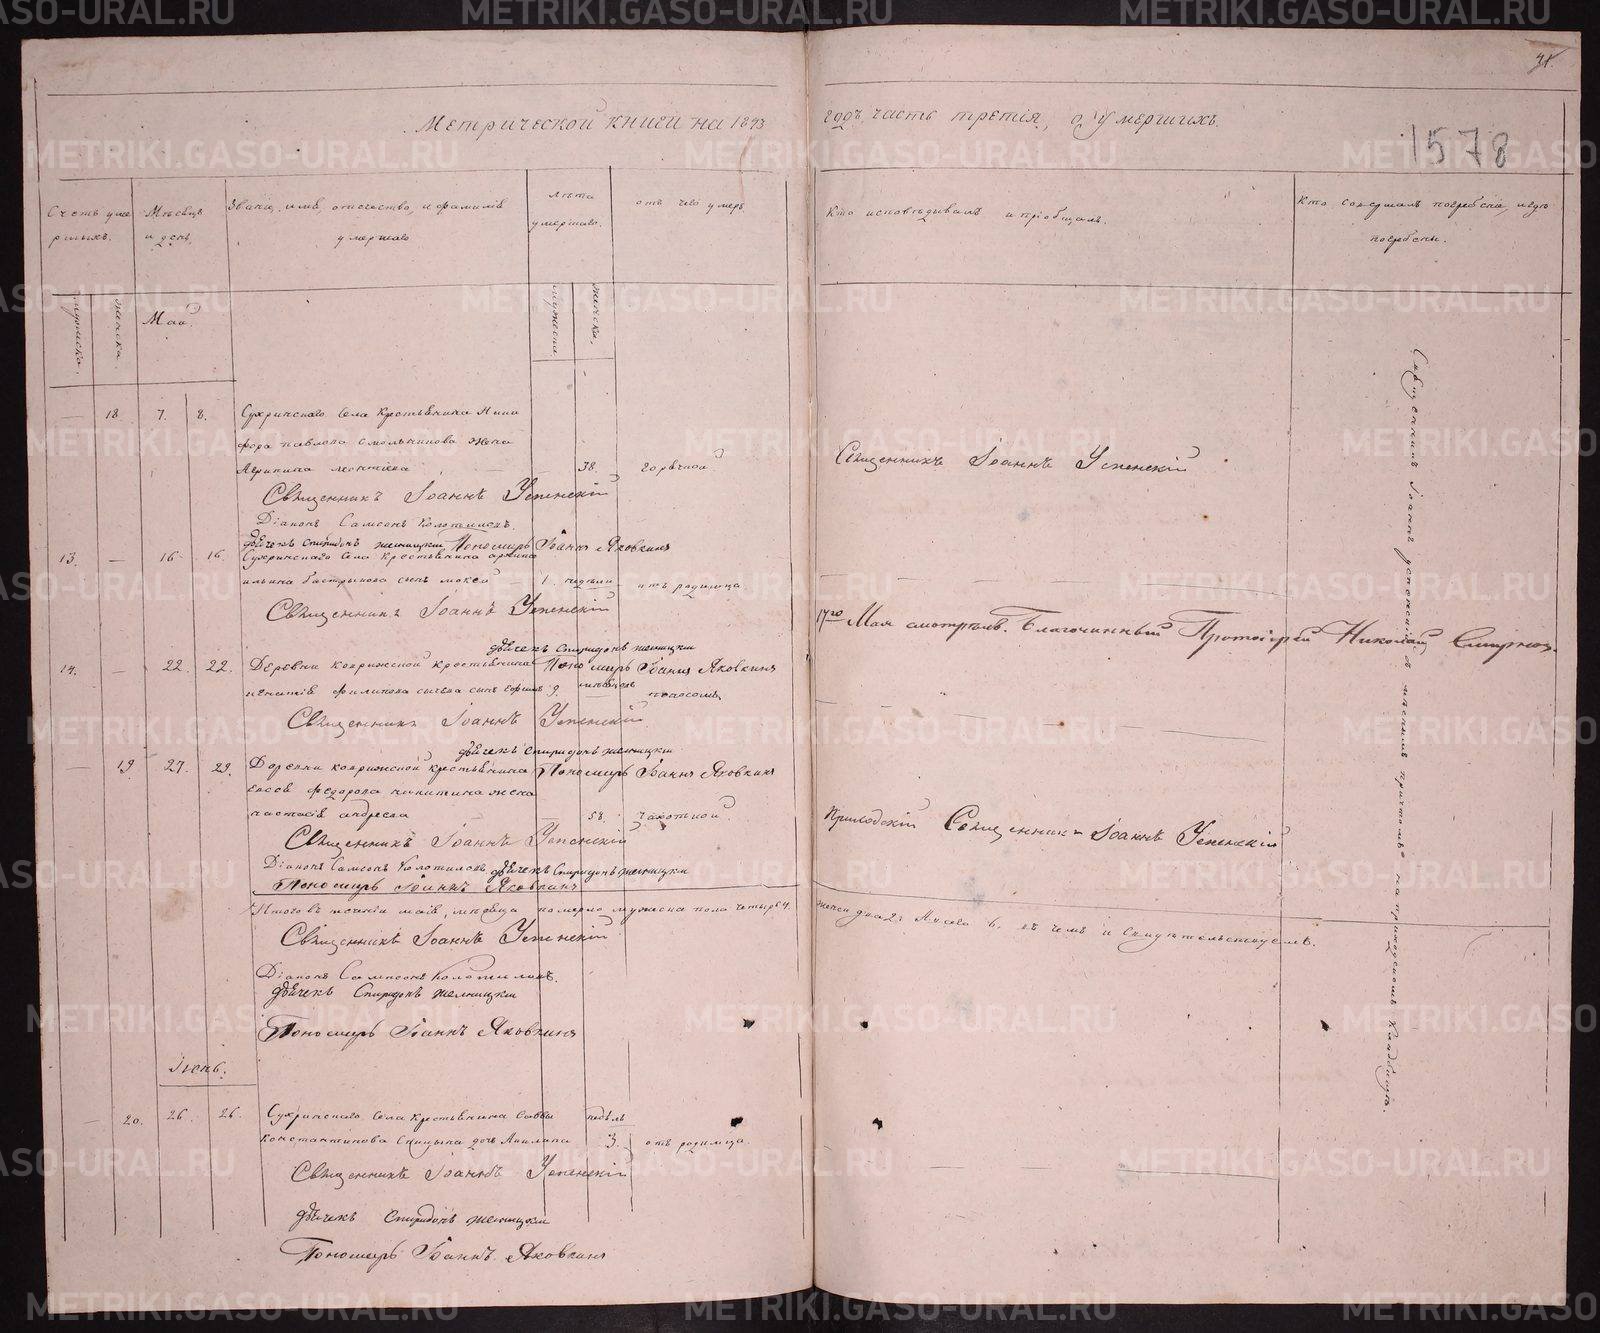 41.
Метрической книги на 1843 годъ, часть третія, о умершихъ.
1578
Счетъ уме
рлыхъ.
Мѣсяцъ
и день
Званіе, имя, отчество, и фамилія
умершаго
лѣта
умершаго.
отъ чего умеръ
Кто исповѣдывалъ и пріобщалъ.
Кто совершалъ погребеніе, и гдѣ
погребены.
мужска.
женска.
Май.
мужеска
женска.
— 18 7. 8. Сухринскаго села крестьянина Ники
фора Павлова Смольникова жена
Агрипина Леонтіева — 38. горячкой
Священникъ Іоаннъ Успенскій
Священникъ Іоаннъ Успенскій
Діаконъ Самсонъ Колотиловъ.
дьячекъ Спиридонъ Пономарь Іоаннъ Яковкинъ
13. — 16 16. Сухринскаго села крестьянина
Ильина сынъ Мокей 1. недѣли отъ родимца
Священникъ Іоаннъ Успенскій
17го Мая смотрѣлъ. Благочинный Протоіерей Николай Смирнов.
дьячекъ Спиридонъ
14. — 22 22. Деревни крестьянина Пономарь Іоаннъ Яковкинъ
Игнатія Филипова сынъ Ефимъ 9. мѣсяцовъ поносомъ
Священникъ Іоаннъ Успенскій
дьячекъ Спиридонъ
— 19 27. 29. Деревни крестьянина Пономарь Іоаннъ Яковкинъ
Федорова Никитина жена
Настасія Андреева — 58. чахоткой.
Приходскій Священникъ Іоаннъ Успенскій
Священникъ Іоаннъ Успенскій
Діаконъ Самсонъ Колотиловъ дьячекъ Спиридонъ
Пономарь Іоаннъ Яковкинъ
Итого въ теченіи маія мѣсяца померло мужеска пола четыре 4. женск два 2. Всего 6. въ чемъ и свидѣтельствуемъ.
Священникъ Іоаннъ Успенскій
Діаконъ Самсонъ Колотиловъ.
дьячекъ Спиридонъ
Пономарь Іоаннъ Яковкинъ
Іюнь.
— 20. 26. 26. Сухринскаго села крестьянина Саввы недѣль
Константинова Спицына дочь Акилина 3. отъ родимца.
Священникъ Іоаннъ Успенскій
дьячекъ Спиридонъ
Пономарь Іоаннъ Яковкинъ
Священникъ Іоаннъ Успенскій съ причтомъ на приходскомъ Кладбищѣ.
METRIKI.GASO-URAL.RU